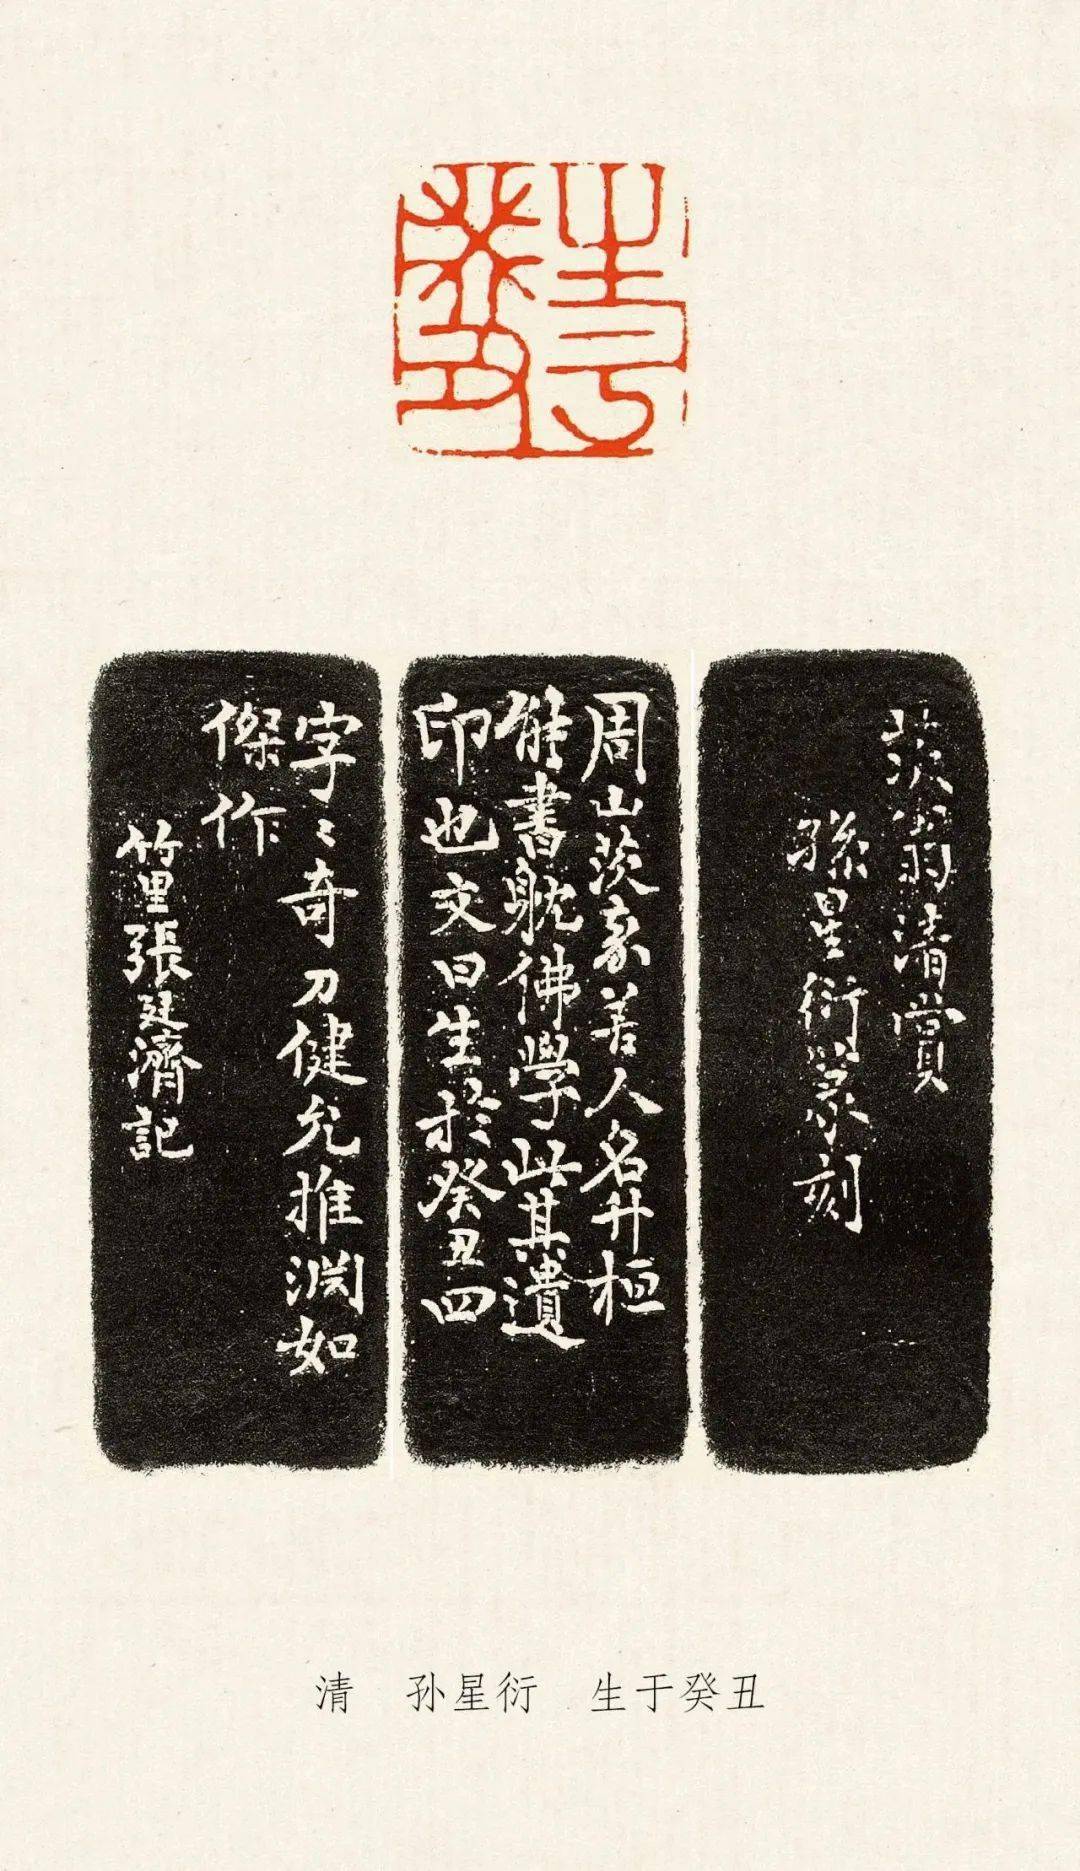 生于
癸丑
茨翁清賞
孫星衍篆刻
周山茨嘉善人名升桓
能書躭佛學此其遺
印也文曰生於癸丑四
字〻奇刀健允推淵如
傑作
竹里張廷濟記
清 孙星衍 生于癸丑